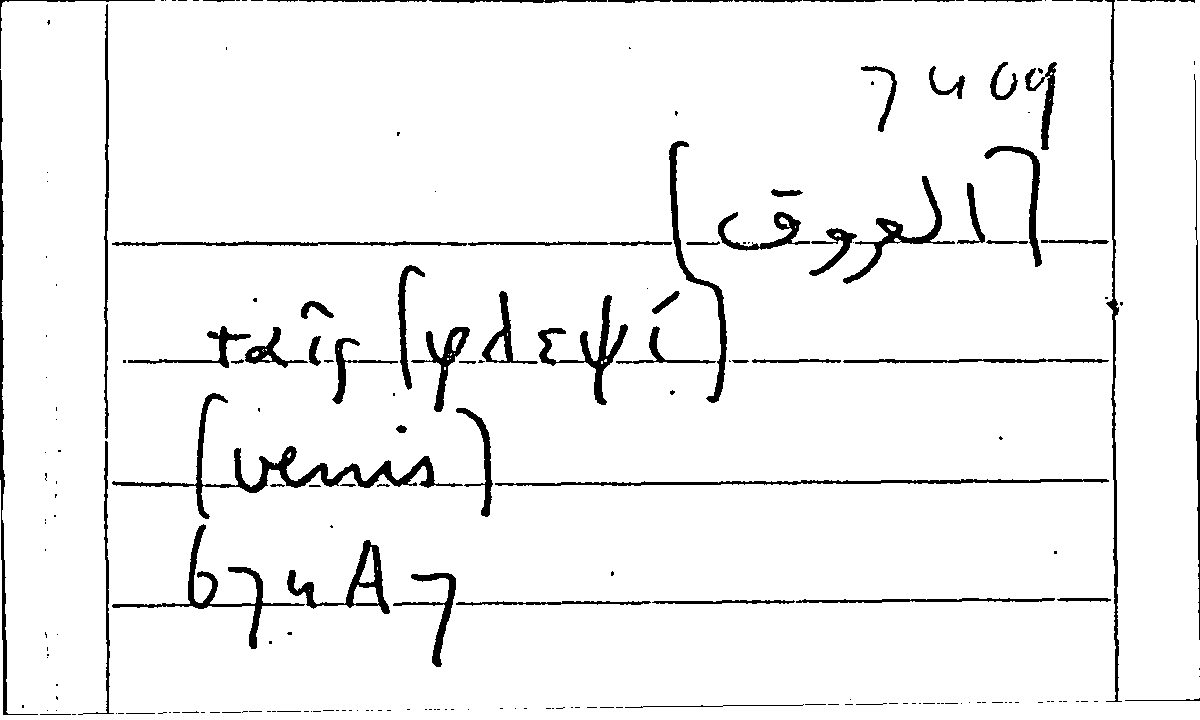 7409
[العروق]
ταῖς [φλεψί]
[venis]
674A7